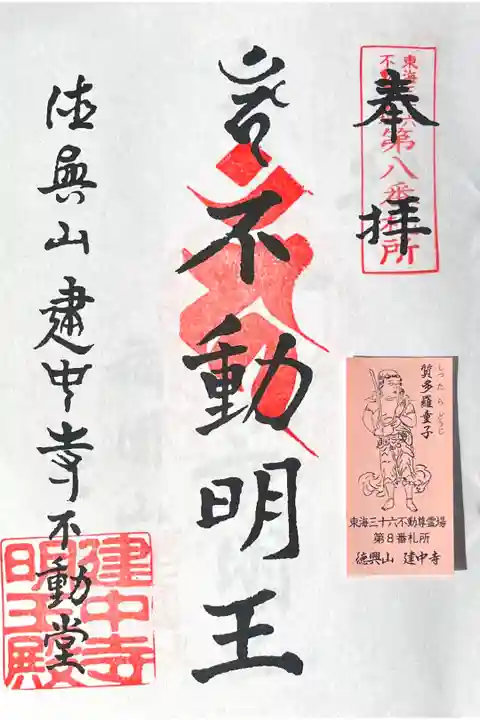 奉拝
東海三十六
不動
第八番札所
不動明王
徳興山建中寺不動堂
建中寺
明王殿
質多羅童子
しったらどうじ
東海三十六不動尊霊場
第8番札所
徳興山 建中寺